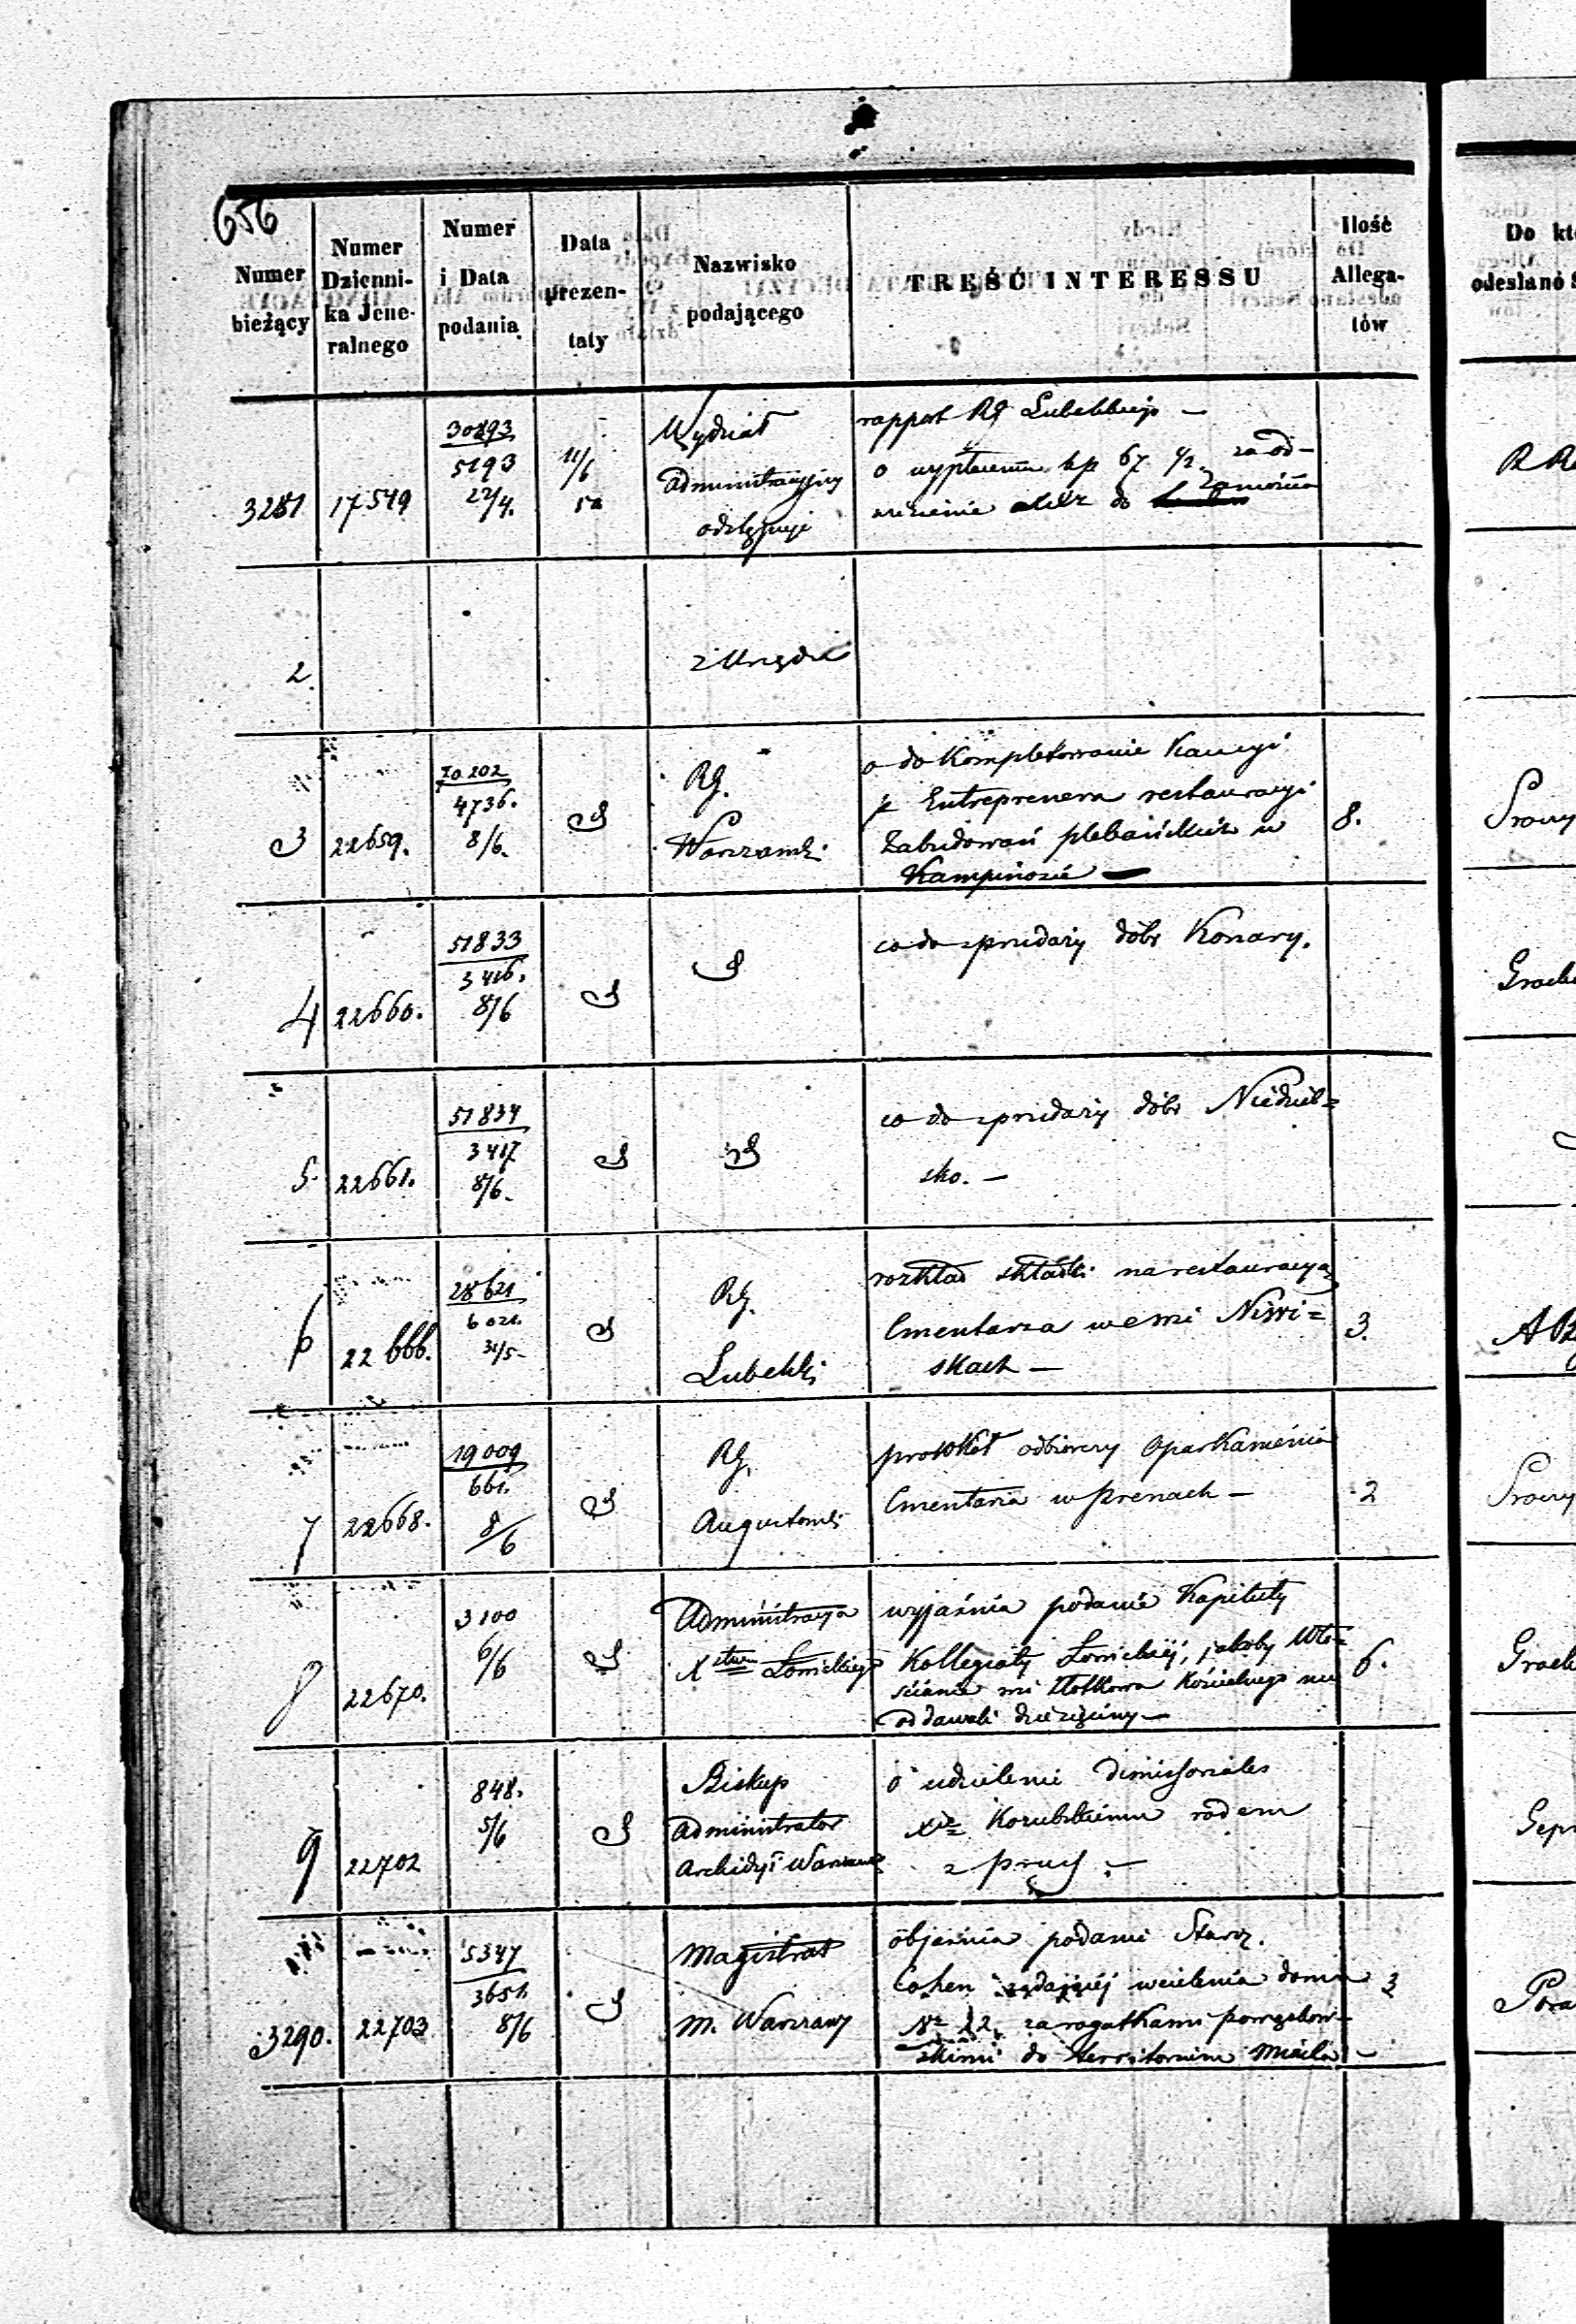 656
Numer bieżący
Numer Dzienni-ka Jene-ralnego
Numer i Data podania
Data prezen-taty
Nazwisko podającego
TREŚĆ INTERESSU
Ilość Allega-tów
Do kt
odesłano
3281 17549 30893 5193 22/4. 11/6 52 Wydział Administracyjny odstępuje
rapport RG Lubelskiego —
o wypłaceniu kp 67 1/2 za od-
do Zamościa
2. z Urzędu
3 22659. 70202 4736. 8/6. RG. Warszawski
o do Kompletowanie Kaucyi
p Entreprenera restauracyi
Zabudowań plebańskich w
Kampinosie —
8.
4 22660. 51833 3416. 8/6
co do sprzedaży dóbr Konary.
5. 22661. 51834 3417 8/6.
co do sprzedaży dóbr Niedrib=
sko. —
6 22666. 28621 6021. 31/5 RG. Lubelski
rozkład składki na restauracyą
Cmentarza we wsi Niwi=
skach —
3.
7 22668. 19009 661. 8/6 RG. Augustowski
protokół odbiorczy Oparkanienia
Cmentarza w Prenach —
2
8 22670. 3100 6/6 Administracya Xstwa Łowickiego
wyjaśnia podanie Kapituły
Kollegiaty Łowickiej, jakoby Wło=
ścianie wsi Kościelnego nie
oddawali dziesięciny —
6.
9 22702 848. 5/6 Biskup Administrator Archidyi Warszaws
o udzielenie Dimissoriales
Xdz Korubskiemu rodem
z Pruss —
3290. 22703 5347 3651. 8/6 Magistrat M. Warszawy
objaśnia podanie Starz.
Cohen żądającej wcielenia domu
Nr 12 za rogatkami powązkow-
skimi do Territorium Miasta —
3